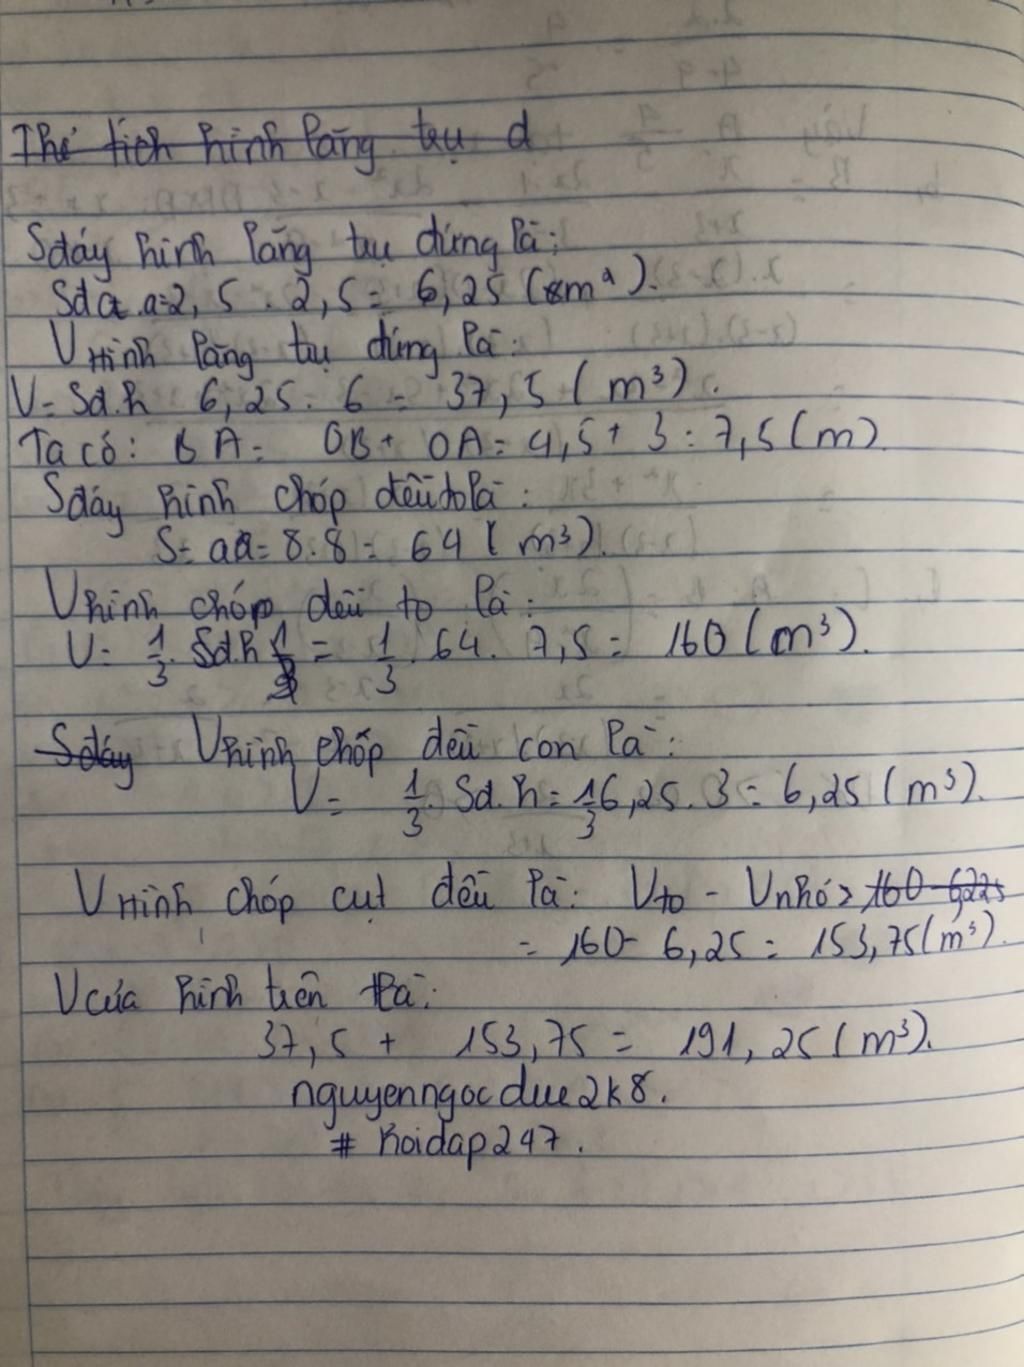 Thể tích hình lăng trụ đ
Sđáy hình lăng trụ đứng là:
Sđ a.a=2,5.2,5= 6,25 (m²).
VHình lăng trụ đứng là:
V= Sđ.h 6,25.6 = 37,5 (m³).
Ta có: BA= OB+ OA= 4,5+ 3=7,5(m)
Sđáy hình chóp đều to là:
S= aa= 8.8= 64 (m³).
Vhình chóp đều to là:
V= 1/3. Sđ.h = 1/3.64. 7,5= 160 (m³).
Sđáy Vhình chóp đều con là:
V= 1/3. Sđ.h= 1/3 6,25.3= 6,25 (m³).
VHình chóp cụt đều là: Vto - Vnhỏ= 160-6,225
= 160- 6,25= 153,75(m³).
Vcủa hình trên là:
37,5 + 153,75= 191,25(m³).
nguyenngocdue2k8.
# hoidap247.